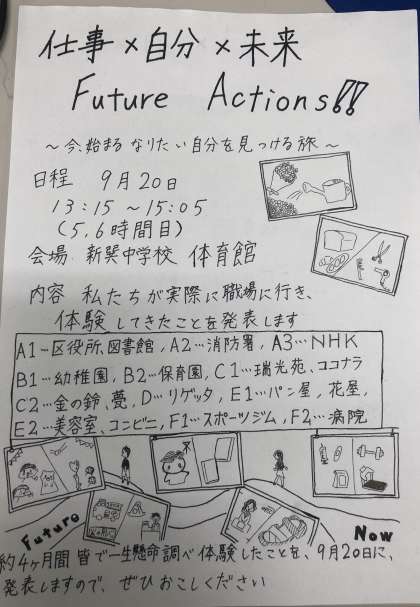 仕事×自分×未来
Future Actions!!
～今、始まる なりたい自分を見つける旅～
日程 9月20日
13:15～15:05
(5,6時間目)
会場 新巽中学校 体育館
内容 私たちが実際に職場に行き、
体験してきたことを発表します
A1…区役所、図書館, A2…消防署, A3…NHK
B1…幼稚園, B2…保育園, C1…瑞光苑、ココナラ
C2…金の鈴、甍, D…リゲッタ, E1…パン屋, 花屋,
E2…美容室、コンビニ, F1…スポーツジム, F2…病院
Future
Now
約4ヶ月間 皆で一生懸命調べ体験したことを、9月20日に、
発表しますので、ぜひおこしください